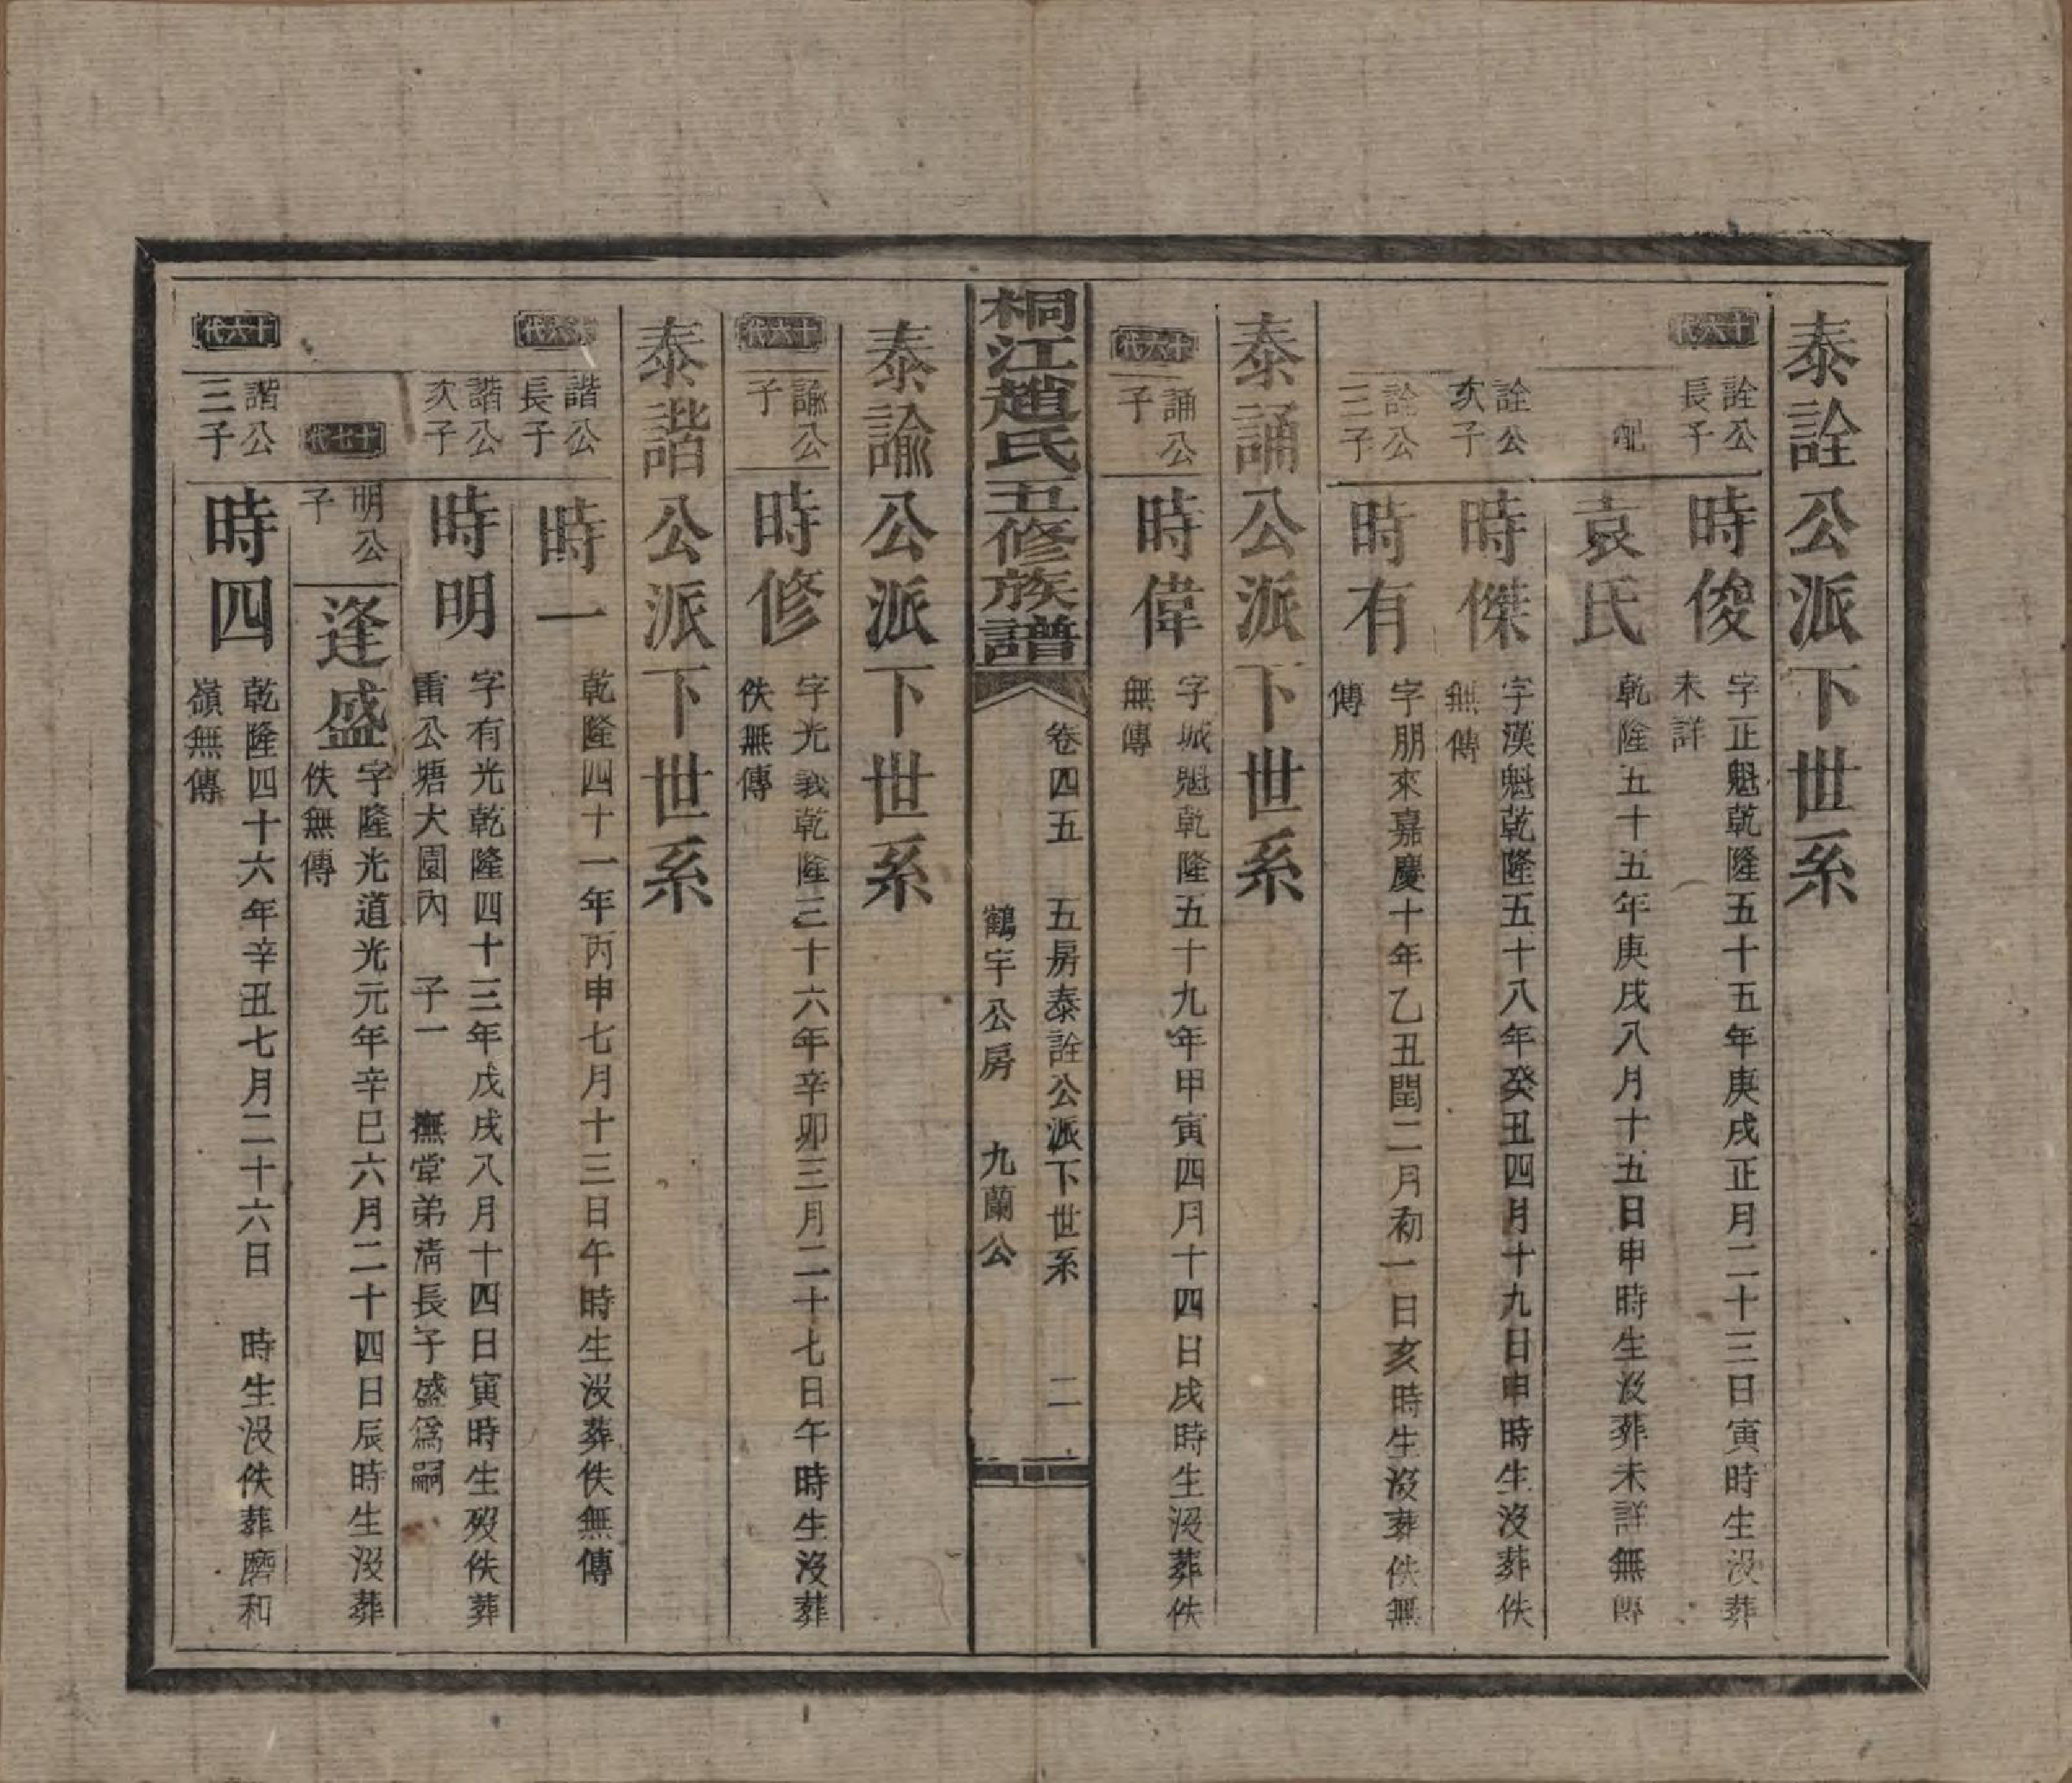 泰詮公派下世系
十六代
詮公長子
時俊
字正魁乾隆五十五年庚戌正月二十三日寅時生没葬
未詳
配
袁氏
乾隆五十五年庚戌八月十五日申時生没葬未詳無傳
詮公次子
時傑
字漢魁乾隆五十八年癸丑四月十九日申時生没葬佚
無傳
詮公三子
時有
字朋來嘉慶十年乙丑閏二月初一日亥時生没葬佚無
傳
泰誦公派下世系
十六代
誦公子
時偉
字城魁乾隆五十九年甲寅四月十四日戌時生没葬佚
無傳
桐江趙氏五修族譜
卷四五 五房泰詮公派下世系 二
鶴宇公房 九蘭公
泰諭公派下世系
十六代
諭公子
時修
字光義乾隆三十六年辛卯三月二十七日午時生没葬
佚無傳
泰諧公派下世系
十六代
諧公長子
時一
乾隆四十一年丙申七月十三日午時生没葬佚無傳
諧公次子
時明
字有光乾隆四十三年戊戌八月十四日寅時生歿佚葬
雷公塘大園內 子一 撫堂弟清長子盛為嗣
十七代
明公子
逢盛
字隆光道光元年辛巳六月二十四日辰時生没葬
佚無傳
十六代
諧公三子
時四
乾隆四十六年辛丑七月二十六日 時生没佚葬磨和
嶺無傳